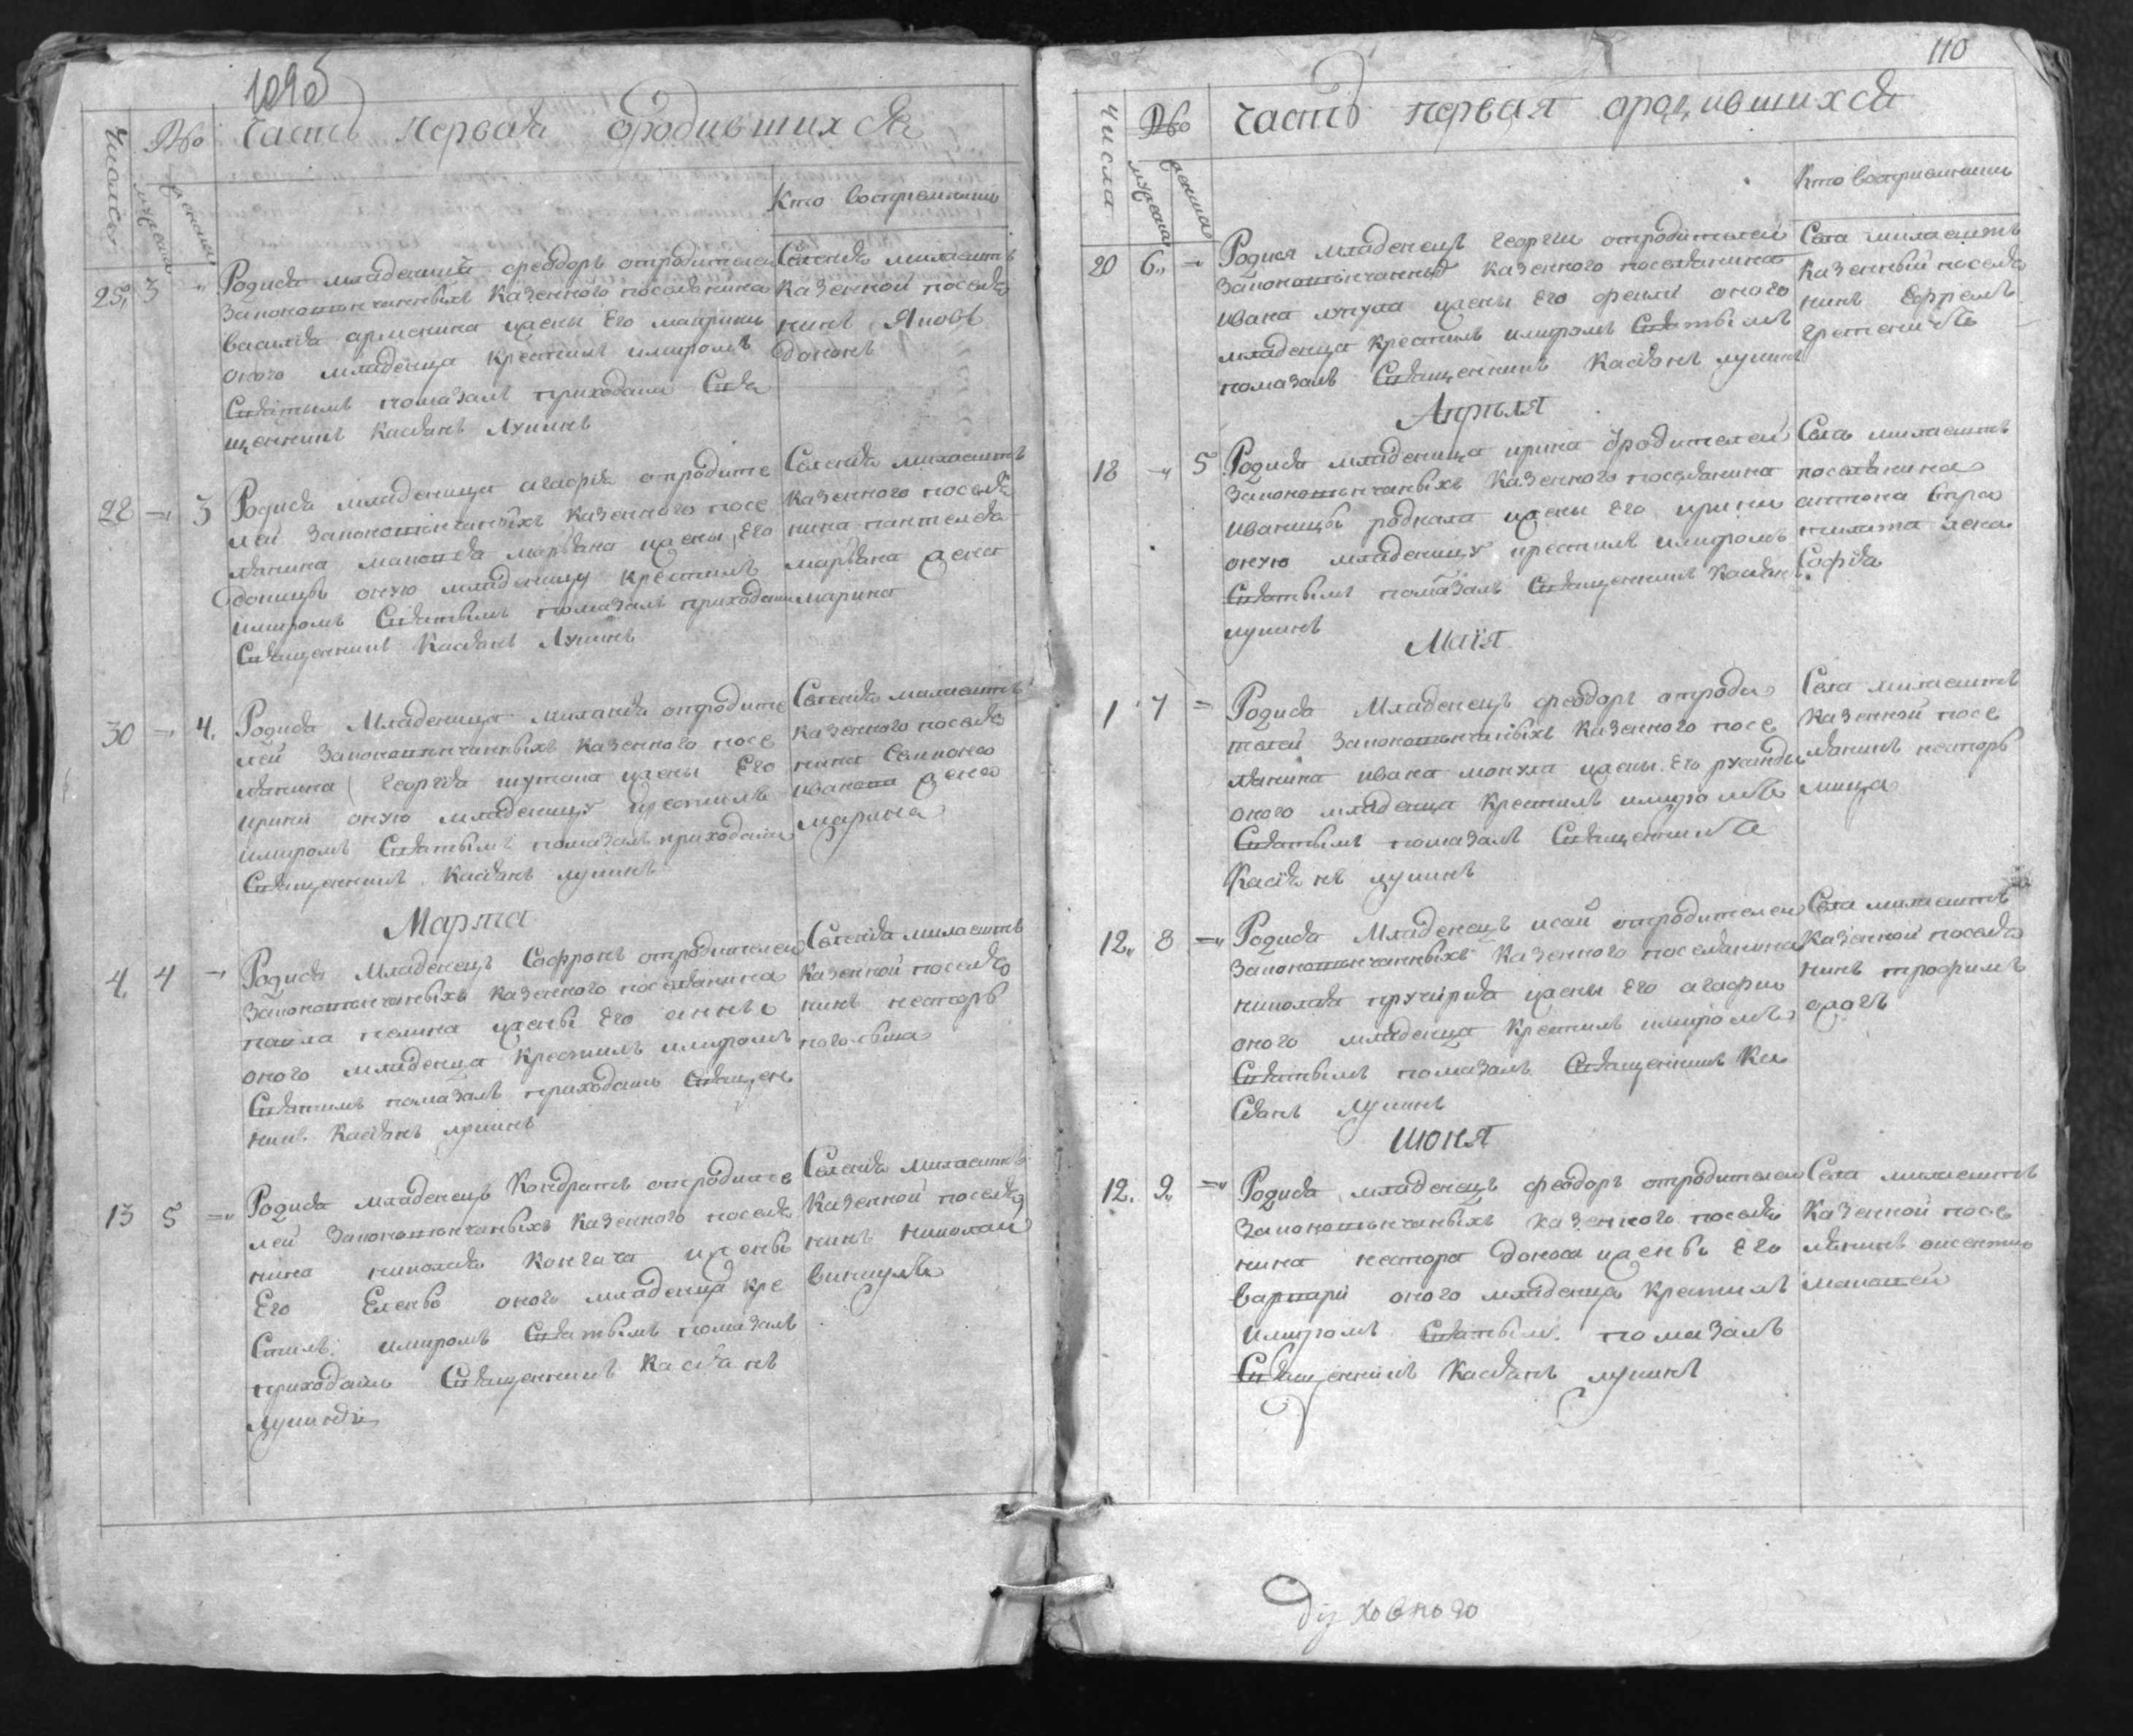 109б
Числа
Дво
Часть Первая ородившихся
Мужеска
Женска
Кто Восприемники
25 3 Родися младенецъ феѡдоръ отродителей
Законовѣнчанныхъ Казенного поселянина
василія арменина ижены Его маѵрики
оного младенца Крестилъ имиромъ
Святымъ помазалъ приходскии Свя
щенникъ Касіанъ Лупинъ
Селенія милаештъ
Казенной поселя
нинъ Яковъ
доконъ
28 3 Родися младеница агафія отродите
лей Законовѣнчанныхъ Казенного посе
лянина маковія марѣяна ижены Его
оную младеницу Крестилъ
имиромъ Святымъ помазалъ приходскии
Священникъ Касіанъ Лупинъ
Селенія милаештъ
Казенного поселя
нина пантелея
марѣяна жена
марина
30 4 Родися Младеница миланія отродите
лей Законовѣнчанныхъ Казенного посе
лянина Георгія шутака ижены Его
ирини оную младеницу крестилъ
имиромъ Святымъ помазалъ приходскии
Священникъ Касіанъ лупинъ
Селенія милаештъ
казенного поселя
нина Симиона
ивакова жена
марина
Марта
4 4 Родися Младенецъ Софронъ отродителей
Законовѣнчанныхъ Казенного поселянина
павла пелина ижены Его анны
оного младенца Крестилъ имиромъ
Святимъ помазалъ приходскии Священ
никъ Касіанъ лупинъ
Селенія милаештъ
Казенной поселя
нинъ несторъ
13 5 Родися младенецъ Кондратъ отродите
лей Законовѣнчанныхъ Казенного поселя
нина николая Конгача ижены
Его Елены оного младенца кре
стилъ имиромъ Святымъ помазалъ
приходскии Священникъ Касіанъ
лупинъ
Селенія милаештъ
Казенной поселя
нинъ николай
викулъ
110
Числа
Дво
Часть первая ородившихся
Мужеска
Женска
Кто восприемники
20 6 Родися младенецъ Георгии отродителей
Законовѣнчанныхъ казенного поселянина
ивана ижены Его оного
младенца крестилъ имиромъ Святымъ
помазалъ Священникъ Касіанъ лупинъ
Села милаештъ
казенный поселя
нинъ Ефремъ
Апрыля
18 5 Родися младеница ирина ѿродителей
Законовѣнчанныхъ Казенного поселянина
родкала ижены Его ирини
оную младеницу крестилъ имиромъ
Святымъ помазалъ Священникъ Касіанъ
лупинъ
Села милаештъ
поселянина
антона
жена
Софія
Маїя
1 7 Родися Младенецъ феѡдоръ отроди
телей Законовѣнчанныхъ Казенного посе
лянина ивана мокула ижены Его
оного младенца Крестилъ имиромъ
Святымъ помазалъ Священникъ
Касіанъ лупинъ
Села милаештъ
Казенной посе
лянинъ несторъ
мица
12 8 Родися Младенецъ исаи отродителей
Законовѣнчанныхъ Казенного поселянина
николая ижены Его агафии
оного младенца Крестилъ имиромъ
Святымъ помазалъ Священникъ Ка
сіанъ Лупинъ
Села милаештъ
Казенной поселя
нинъ трофимъ
Июня
12 9 Родися младенецъ феѡдоръ отродителей
Законовѣнчанныхъ казенного поселя
нина нестора докона ижены Его
варвари оного младенца Крестилъ
имиромъ Святым помазалъ
Священникъ Касіанъ лупинъ
Села милаештъ
Казенной посе
лянинъ
маковей
духовного